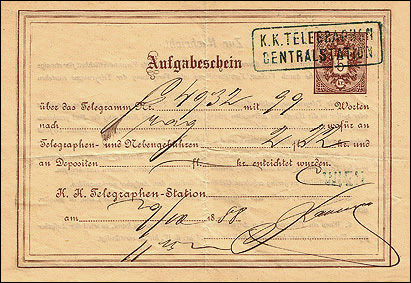 K.K. TELEGRAPHEN
CENTRALSTATION
5
Aufgabeschein
über das Telegramm Nr. 4932 mit 99 Worten
nach Prag wofür an
Telegraphen- und Nebengebühren 2 fl. 22 kr. und
an Depositen fl. kr. entrichtet wurden.
WIEN
K. K. Telegraphen-Station
am 29/10 1888.